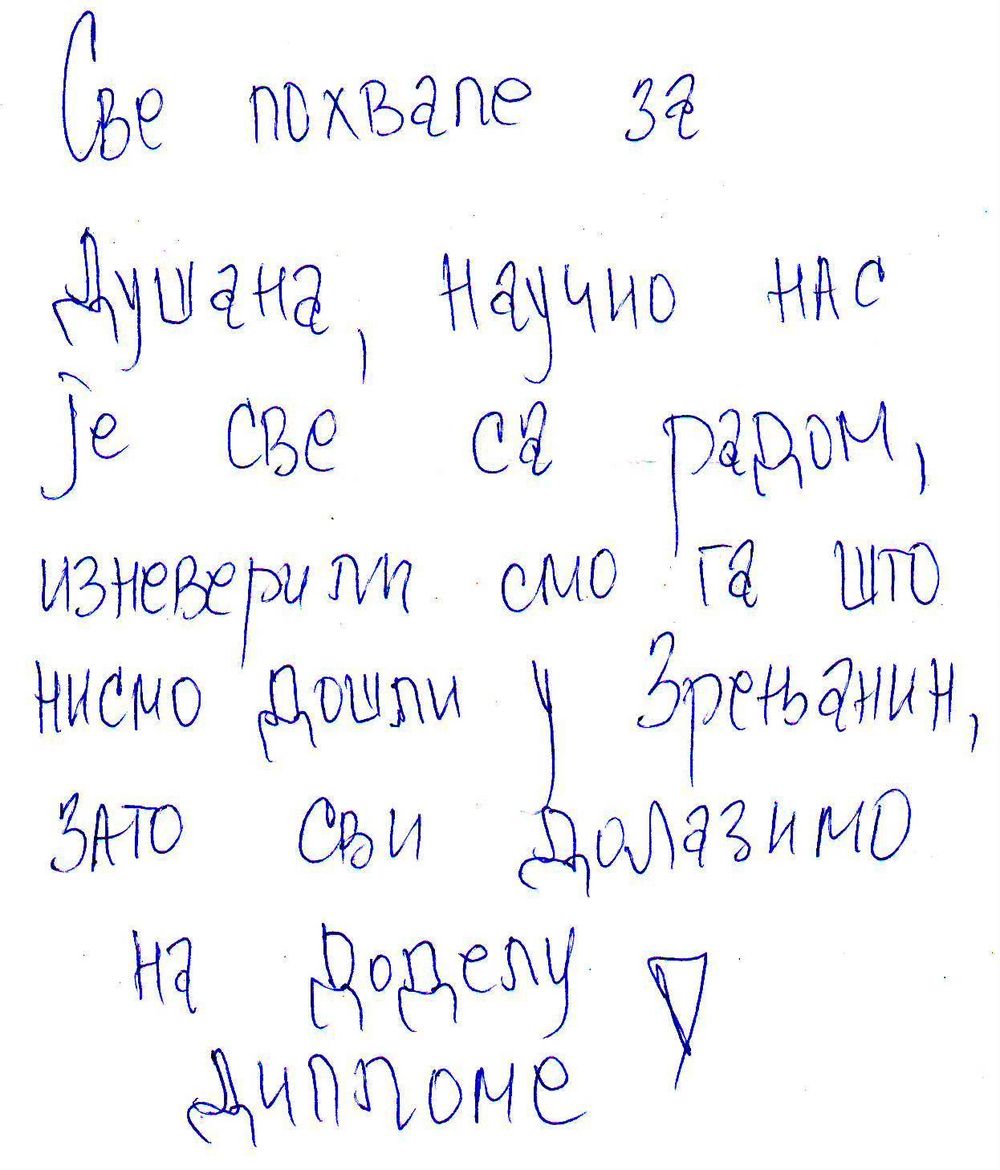 Све похвале за
Душана, научио нас
је све са радом,
изневерили смо га што
нисмо дошли у Зрењанин,
зато сви долазимо
на доделу
дипломе!